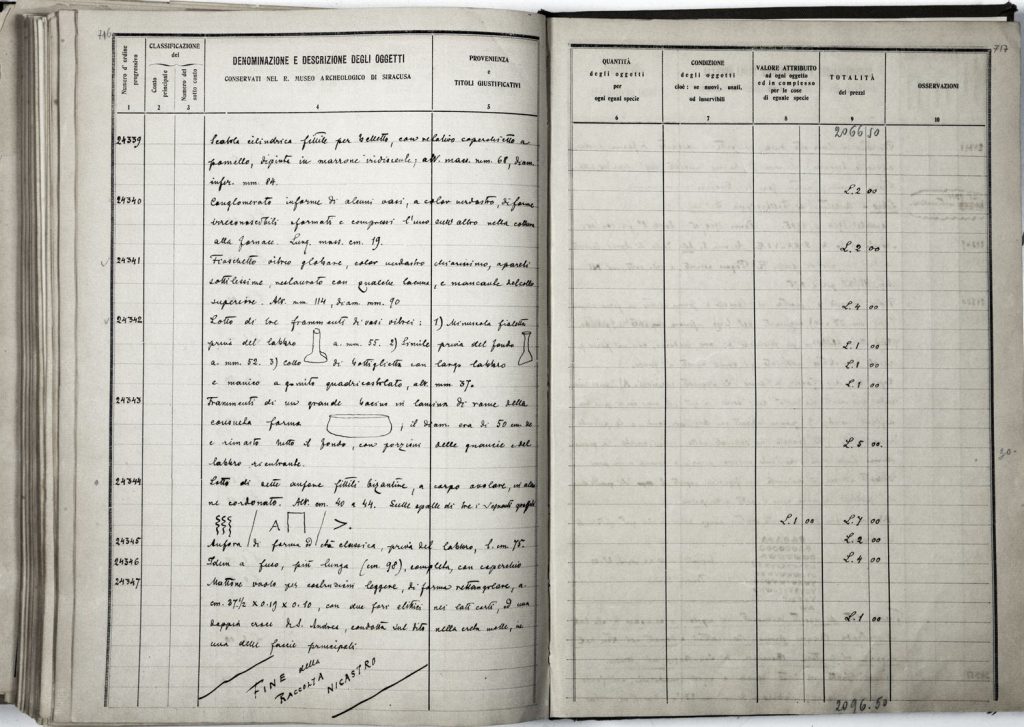 716
Numero d'ordine progressivo
CLASSIFICAZIONE
del
Conto principale
Numero del sotto conto
DENOMINAZIONE E DESCRIZIONE DEGLI OGGETTI
CONSERVATI NEL R. MUSEO ARCHEOLOGICO DI SIRACUSA
PROVENIENZA
e
TITOLI GIUSTIFICATIVI
1 2 3 4 5
24339 Scatola cilindrica fittile per belletto, con relativo coperchietto a
pomello, dipinta in marrone iridiscente; alt. mass. mm. 68, diam.
infer. mm. 84.
24340 Conglomerato informe di alcuni vasi, a color verdastro, di forme
irreconoscibili sformati e compressi l'uno sull'altro nella cottura
alla fornace. Lung. mass. cm. 19.
24341 Fiaschetto vitreo globare, color verdastro chiarissimo, a pareti
sottilissime, restaurato con qualche lacuna, e mancante del collo
superiore. Alt. mm 114, diam. mm. 90
24342 Lotto di tre frammenti di vasi vitrei: 1) Minuscola fialetta
priva del labbro a. mm. 55. 2) Simile priva del fondo
a. mm. 52. 3) Collo di bottiglietta con largo labbro
e manico a gomito quadricostolato, alt. mm 37.
24343 Frammenti di un grande bacino in lamina di rame della
consueta forma ; il diam. era di 50 cm. ne
è rimasto tutto il fondo, con porzioni delle guancie e del
labbro rientrante.
24344 Lotto di sette anfore fittili bizantine, a corpo ovolare,
ne cordonato. Alt. cm. 40 a 44. Sulle spalle di tre i seguenti graffiti
/ A Π / >.
24345 Anfora di forma d'età classica, priva del labbro, l. cm. 75.
24346 Idem a fuso, più lunga (cm. 98), completa, con coperchio
24347 Mattone vuoto per costruzioni leggere, di forma rettangolare, a.
cm. 37.½ x 0.19 x 0.10, con due fori elittici nei lati corti, ed una
doppia croce di S. Andrea, condotta sul dito nella creta molle, ne
una delle faccie principali
FINE della
RACCOLTA NICASTRO
717
QUANTITÀ
degli oggetti
per
ogni egual specie
CONDIZIONE
degli oggetti
cioè: se nuovi, usati,
od inservibili
VALORE ATTRIBUITO
ad ogni oggetto
ed in complesso
per le cose
di eguale specie
TOTALITÀ
dei prezzi
OSSERVAZIONI
6 7 8 9 10
2066 50
L. 2 00
L. 2 00
L. 4 00
L. 1 00
L. 1 00
L. 1 00
L. 5 00.
L. 1 00 L. 7 00
L. 2 00
L. 4 00
L. 1 00
2096.50